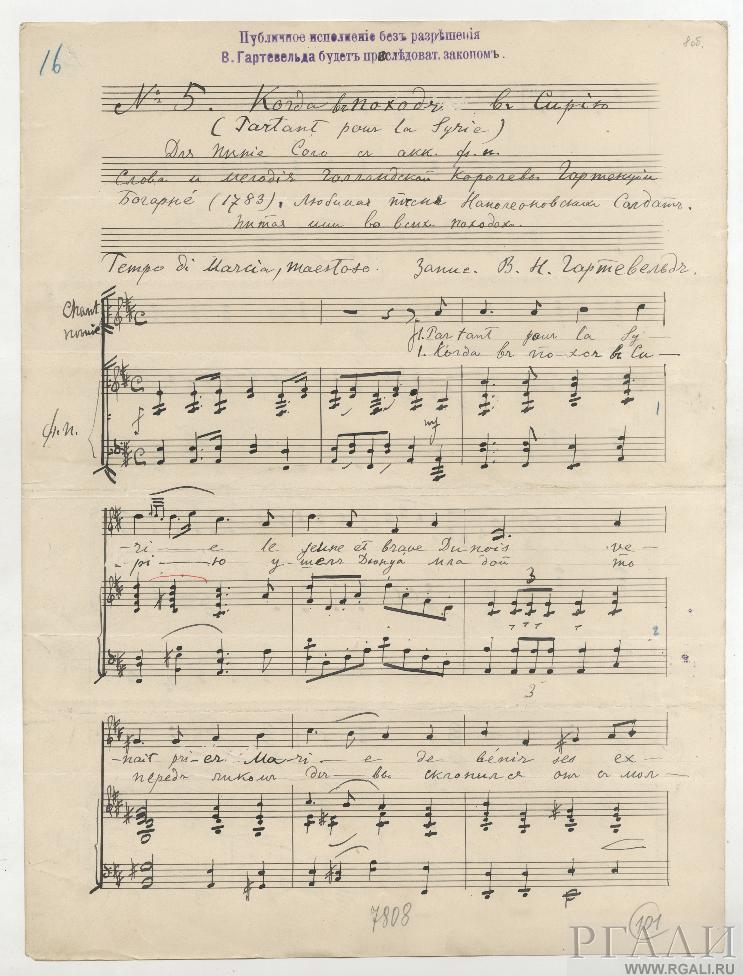 Публичное исполненіе безъ разрѣшенія
В. Гартевельда будетъ преслѣдоват. закономъ.
16
8 об.
№ 5. Когда въ походъ въ Сирію
(Partant pour la Syrie)
Для пѣнія Соло съ акк. ф.п.
Слова и мелодія Голландской Королевы Гортензіи
Богарне (1783). Любимая пѣсня Наполеоновскихъ Солдатъ.
Пѣтая ими во всѣхъ походахъ.
Tempo di Marcia, maestoso. Запис. В. Н. Гартевельдъ.
Chant
1. Partant pour la Sy-
1. Когда въ поход въ Си-
ф.п.
f
mf
1
-ri-e le jeune et brave Dunois ve-
-рі-ю у-шелъ Дюнуа мла дой то
3
2
3
-nait pri-er Ma-ri-e de bénir ses ex-
передъ ликомъ дѣ-вы склонился онъ съ мол-
7808
101
РГАЛИ
WWW.RGALI.RU